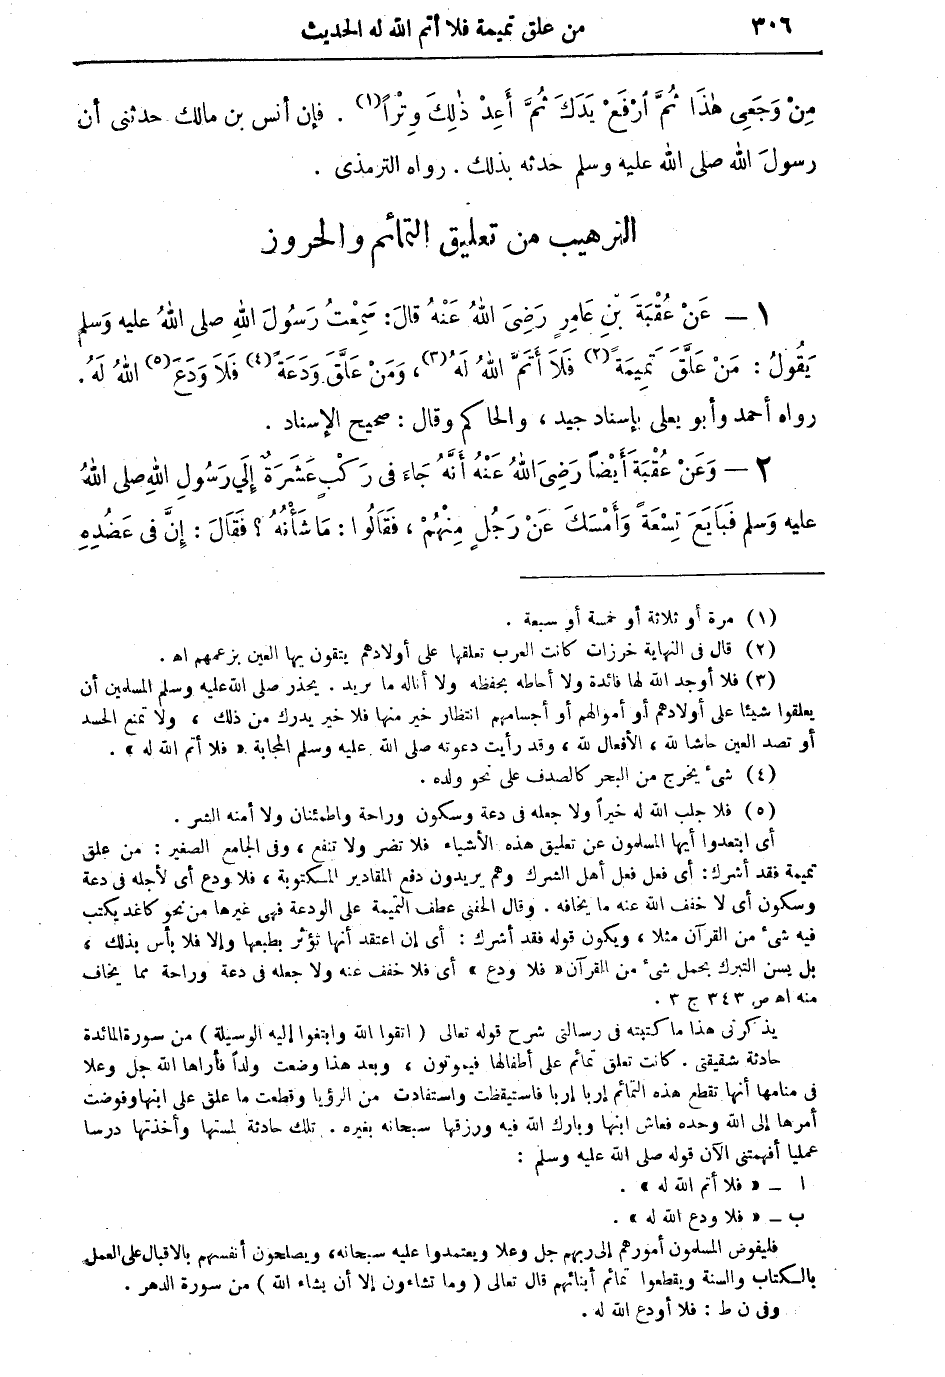 ٣٠٦ من علق تميمة فلا أتم الله له الحديث
مِنْ وَجَعِى هٰذَا ثُمَّ ٱرْفَعْ يَدَكَ ثُمَّ أَعِدْ ذٰلِكَ وِتْراً(١) . فإن أنس بن مالك حدثنى أن
رسولَ الله صلى الله عليه وسلم حدثه بذلك . رواه الترمذى .
الترهيب من تعليق التمائم والحروز
١ — عَنْ عُقْبَةَ بْنِ عَامِرٍ رَضِىَ اللهُ عَنْهُ قالَ: سَمِعْتُ رَسُولَ اللهِ صلى اللهُ عليه وَسلم
يَقُولُ : مَنْ عَلَّقَ تَمِيمَةً(٢) فَلَا أَتَمَّ اللهُ لَهُ(٣) ، وَمَنْ عَلَّقَ وَدَعَةً(٤) فَلَا وَدَعَ(٥) اللهُ لَهُ .
رواه أحمد وأبو يعلى بإسناد جيد ، والحاكم وقال : صحيح الإسناد .
٢ — وَعَنْ عُقْبَةَ أَيْضاً رَضِىَ اللهُ عَنْهُ أَنَّهُ جَاءَ فى رَكْبٍ عَشَرَةٌ إِلَي رَسُولِ اللهِ صلى اللهُ
عليه وَسلم فَبَايَعَ تِسْعَةً وَأَمْسَكَ عَنْ رَجُلٍ مِنْهُمْ ، فَقَالُوا : مَا شَأْنُهُ ؟ فَقَالَ : إِنَّ فى عَضُدِهِ
(١) مرة أو ثلاثة أو خمسة أو سبعة .
(٢) قال فى النهاية خرزات كانت العرب تعلقها على أولادهم يتقون بها العين بزعمهم اه .
(٣) فلا أوجد الله لها فائدة ولا أحاطه بحفظه ولا أناله ما يريد . يحذر صلى الله عليه وسلم المسلمين أن
يعلقوا شيئا على أولادهم أو أموالهم أو أجسامهم انتظار خير منها فلا خير يدرك من ذلك ، ولا تمنع الحسد
أو تصد العين حاشا لله ، الأفعال لله ، وقد رأيت دعوته صلى الله عليه وسلم المجابة « فلا أتم الله له » .
(٤) شىء يخرج من البحر كالصدف على نحو ولده .
(٥) فلا جلب الله له خيراً ولا جعله فى دعة وسكون وراحة واطمئنان ولا أمنه الشر .
أى ابتعدوا أيها المسلمون عن تعليق هذه الأشياء فلا تضر ولا تنفع ، وفى الجامع الصغير : من علق
تميمة فقد أشرك: أى فعل فعل أهل الشرك وهم يريدون دفع المقادير المكتوبة ، فلا ودع أى لأجله فى دعة
وسكون أى لا خفف الله عنه ما يخافه . وقال الحفنى عطف التميمة على الودعة فهى غيرها من نحو كاغد يكتب
فيه شىء من القرآن مثلا ، ويكون قوله فقد أشرك : أى إن اعتقد أنها تؤثر بطبعها وإلا فلا بأس بذلك ،
بل يسن التبرك بحمل شىء من القرآن « فلا ودع » أى فلا خفف عنه ولا جعله فى دعة وراحة مما يخاف
منه اه ص ٣٤٣ ج ٣ .
يذكرنى هذا ما كتبته فى رسالتى شرح قوله تعالى ( اتقوا الله وابتغوا إليه الوسيلة ) من سورة المائدة
حادثة شقيقتى . كانت تعلق تمائم على أطفالها فيموتون ، وبعد هذا وضعت ولداً فأراها الله جل وعلا
فى منامها أنها تقطع هذه التمائم إربا إربا فاستيقظت واستفادت من الرؤيا وقطعت ما علق على ابنها وفوضت
أمرها إلى الله وحده فعاش ابنها وبارك الله فيه ورزقها سبحانه بغيره . تلك حادثة لمستها وأخذتها درسا
عمليا أفهمتنى الآن قوله صلى الله عليه وسلم :
ا — « فلا أتم الله له » .
ب — « فلا ودع الله له » .
فليفوض المسلمون أمورهم إلى ربهم جل وعلا ويعتمدوا عليه سبحانه، ويصلحون أنفسهم بالاقبال على العمل
بالكتاب والسنة ويقطعوا تمائم أبنائهم قال تعالى ( وما تشاءون إلا أن يشاء الله ) من سورة الدهر .
وفى ن ط : فلا أودع الله له .